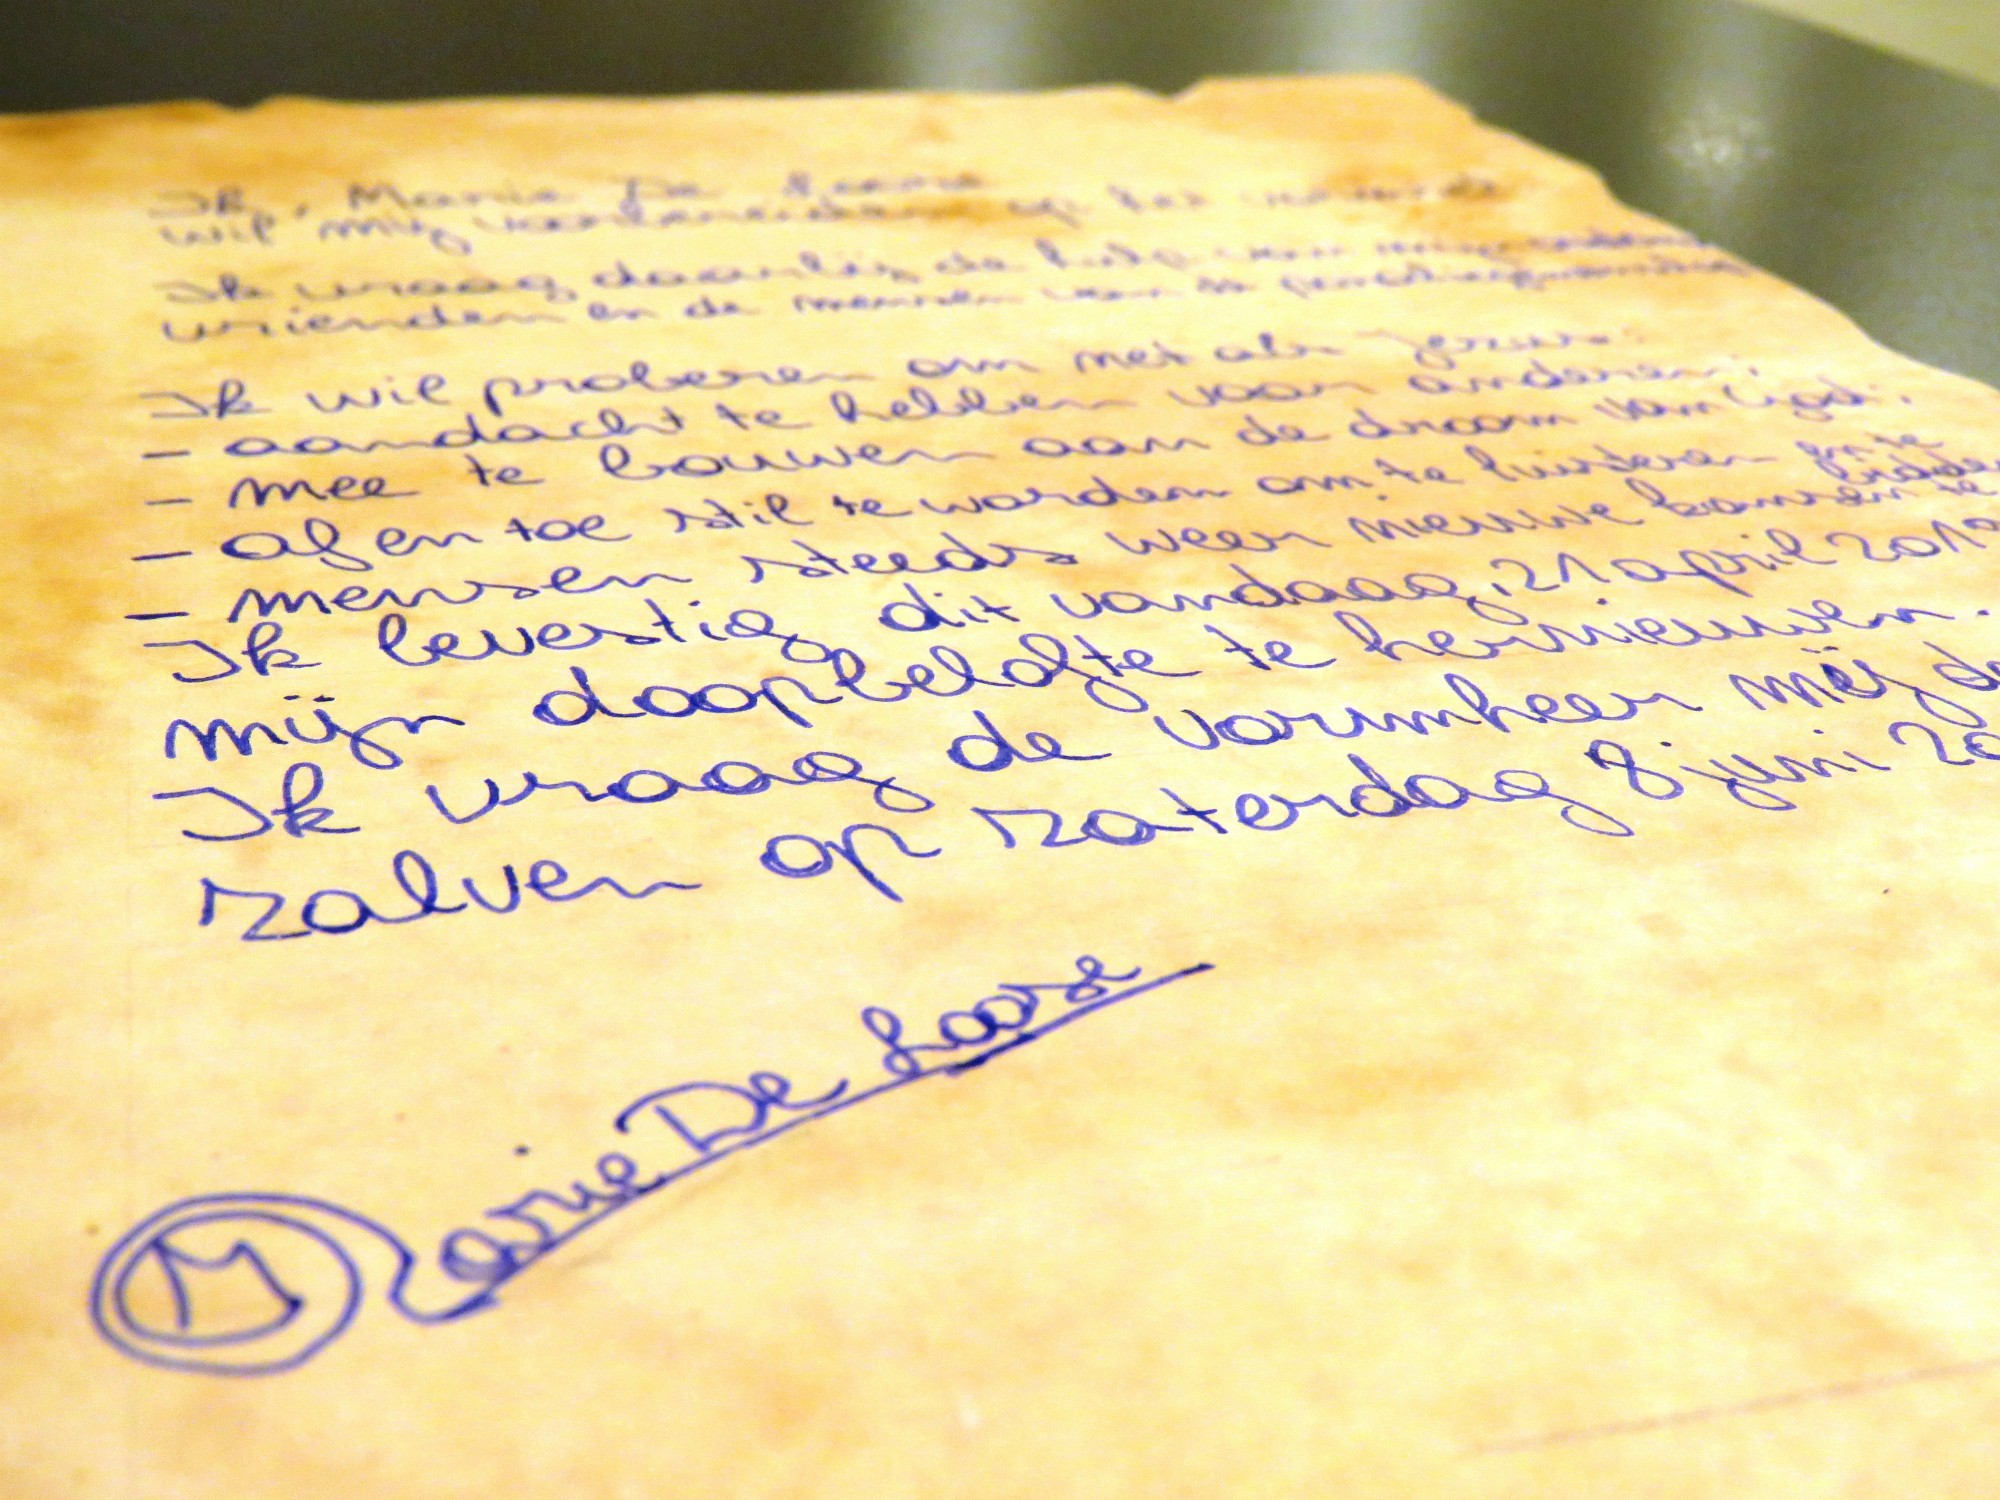 Ik, Marie De Loose
wil mij voorbereiden op het vormsel
Ik vraag daarbij de hulp van mijn ouders
vrienden en de mensen van de parochiegemeenschap
Ik wil proberen om net als Jezus:
- aandacht te hebben voor anderen;
- mee te bouwen aan de droom van God;
- af en toe stil te worden om te luisteren en te bidden
- mensen steeds weer nieuwe kansen te
Ik bevestig dit vandaag, 21 april
mijn doopbelofte te hernieuwen.
Ik vraag de vormheer mij
zalven op zaterdag 8 juni
Marie De Loose
M